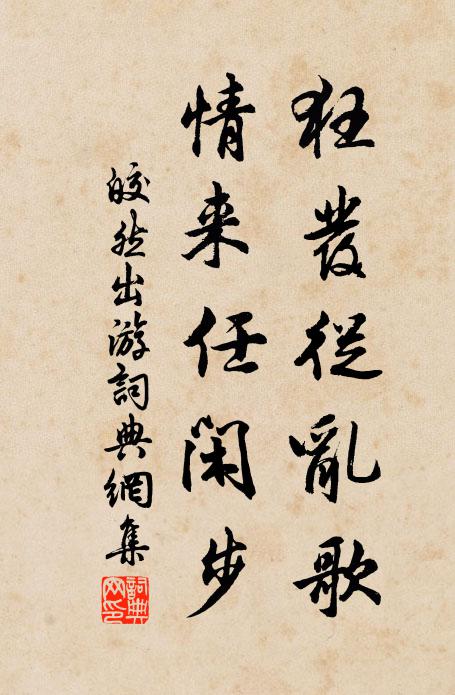 狂發從亂歌
情来任閑步
皎然出游詞典網集
詞典網印